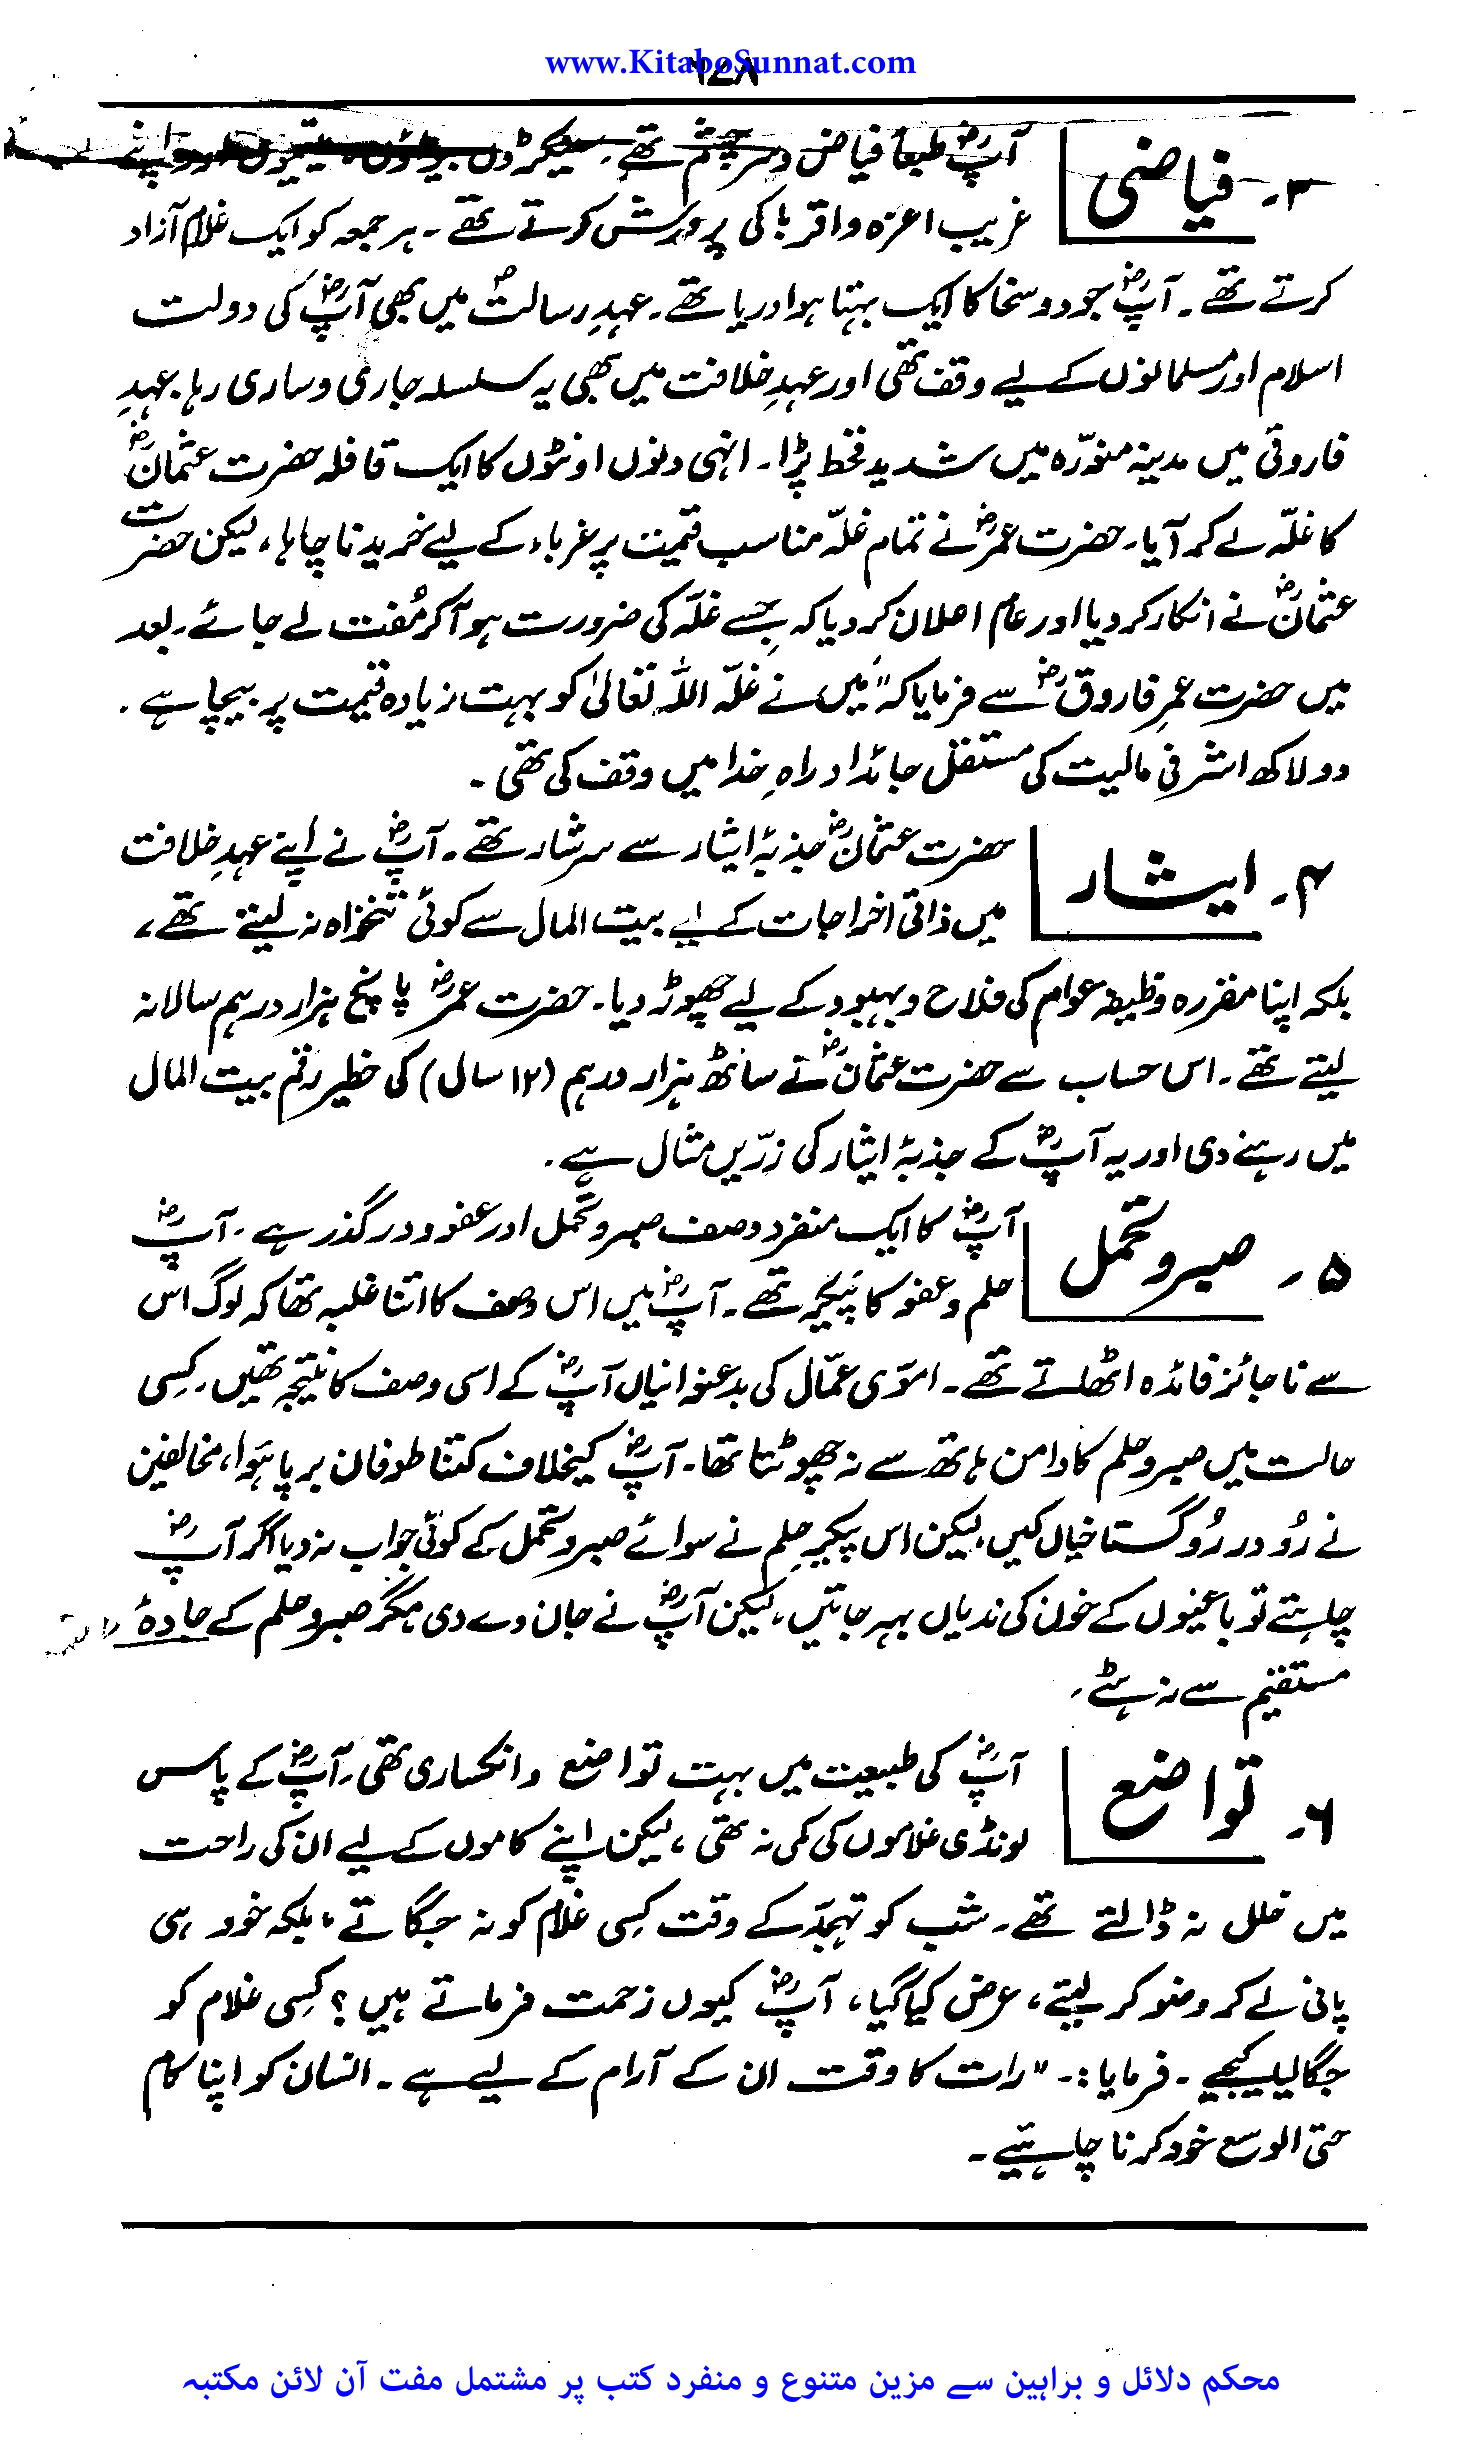 www.KitaboSunnat.com
۶۷۸
۳۔ فیاضی
آپؓ طبعاً فیاض و سرچشم تھے۔ سیکڑوں بیواؤں، یتیموں اور اپنے
غریب اعزہ و اقربا کی پرورش کرتے تھے۔ ہر جمعہ کو ایک غلام آزاد
کرتے تھے۔ آپؓ جود و سخا کا ایک بہتا ہوا دریا تھے۔ عہدِ رسالتؐ میں بھی آپؓ کی دولت
اسلام اور مسلمانوں کے لیے وقف تھی اور عہدِ خلافت میں بھی یہ سلسلہ جاری و ساری رہا۔ عہدِ
فاروقی میں مدینہ منورّہ میں شدید قحط پڑا۔ انہی دنوں اونٹوں کا ایک قافلہ حضرت عثمانؓ
کا غلّہ لے کر آیا۔ حضرت عمرؓ نے تمام غلّہ مناسب قیمت پر غرباء کے لیے خریدنا چاہا، لیکن حضرت
عثمانؓ نے انکار کر دیا اور عام اعلان کر دیا کہ جسے غلّہ کی ضرورت ہو آ کر مُفت لے جائے۔ بعد
میں حضرت عمرِ فاروقؓ سے فرمایا کہ "میں نے غلّہ اللہ تعالیٰ کو بہت زیادہ قیمت پر بیچا ہے۔
دو لاکھ اشرفی مالیت کی مستقل جائداد راہِ خدا میں وقف کی تھی۔
۴۔ ایثار
حضرت عثمانؓ جذبۂ ایثار سے سرشار تھے۔ آپؓ نے اپنے عہدِ خلافت
میں ذاتی اخراجات کے لیے بیت المال سے کوئی تنخواہ نہ لیتے تھے،
بلکہ اپنا مقررہ وظیفہ عوام کی فلاح و بہبود کے لیے چھوڑ دیا۔ حضرت عمرؓ پانچ ہزار درہم سالانہ
لیتے تھے۔ اس حساب سے حضرت عثمانؓ نے ساٹھ ہزار درہم (۱۲ سال) کی خطیر رقم بیت المال
میں رہنے دی اور یہ آپؓ کے جذبۂ ایثار کی زرّیں مثال ہے۔
۵۔ صبر و تحمل
آپؓ کا ایک منفرد وصف صبر و تحمل اور عفو و درگذر ہے۔ آپؓ
حلم و عفو کا پیکر تھے۔ آپؓ میں اس وصف کا اتنا غلبہ تھا کہ لوگ اس
سے ناجائز فائدہ اٹھاتے تھے۔ اموی عمّال کی بدعنوانیاں آپؓ کے اسی وصف کا نتیجہ تھیں۔ کسی
حالت میں صبر و حلم کا دامن ہاتھ سے نہ چھوٹتا تھا۔ آپؓ کیخلاف کتنا طوفان برپا ہوا، مخالفین
نے رُو در رُو گستاخیاں کیں، لیکن اس پیکرِ حلم نے سوائے صبر و تحمل کے کوئی جواب نہ دیا اگر آپؓ
چاہتے تو باغیوں کے خون کی ندیاں بہہ جاتیں، لیکن آپؓ نے جان دے دی مگر صبر و حلم کے جادۂ
مستقیم سے نہ ہٹے۔
۶۔ تواضع
آپؓ کی طبیعت میں بہت تواضع و انکساری تھی۔ آپؓ کے پاس
لونڈی غلاموں کی کمی نہ تھی، لیکن اپنے کاموں کے لیے ان کی راحت
میں خلل نہ ڈالتے تھے۔ شب کو تہجد کے وقت کسی غلام کو نہ جگاتے، بلکہ خود ہی
پانی لے کر وضو کر لیتے، عرض کیا گیا، آپؓ کیوں زحمت فرماتے ہیں؟ کسی غلام کو
جگا لیا کیجیے۔ فرمایا :۔ "رات کا وقت ان کے آرام کے لیے ہے۔ انسان کو اپنا کام
حتی الوسع خود کرنا چاہیے۔
محکم دلائل و براہین سے مزین متنوع و منفرد کتب پر مشتمل مفت آن لائن مکتبہ